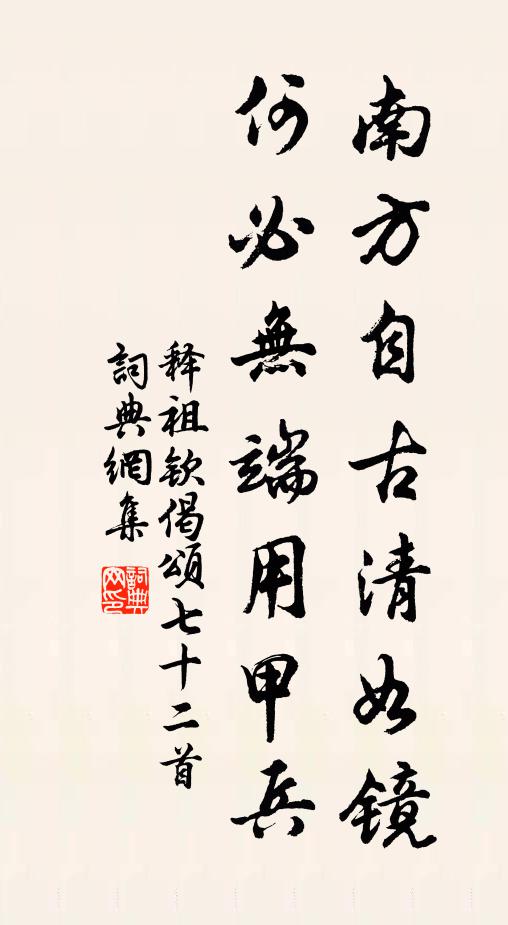 南方自古清如镜
何必無端用甲兵
释祖钦偈頌七十二首
詞典網集
詞典網印